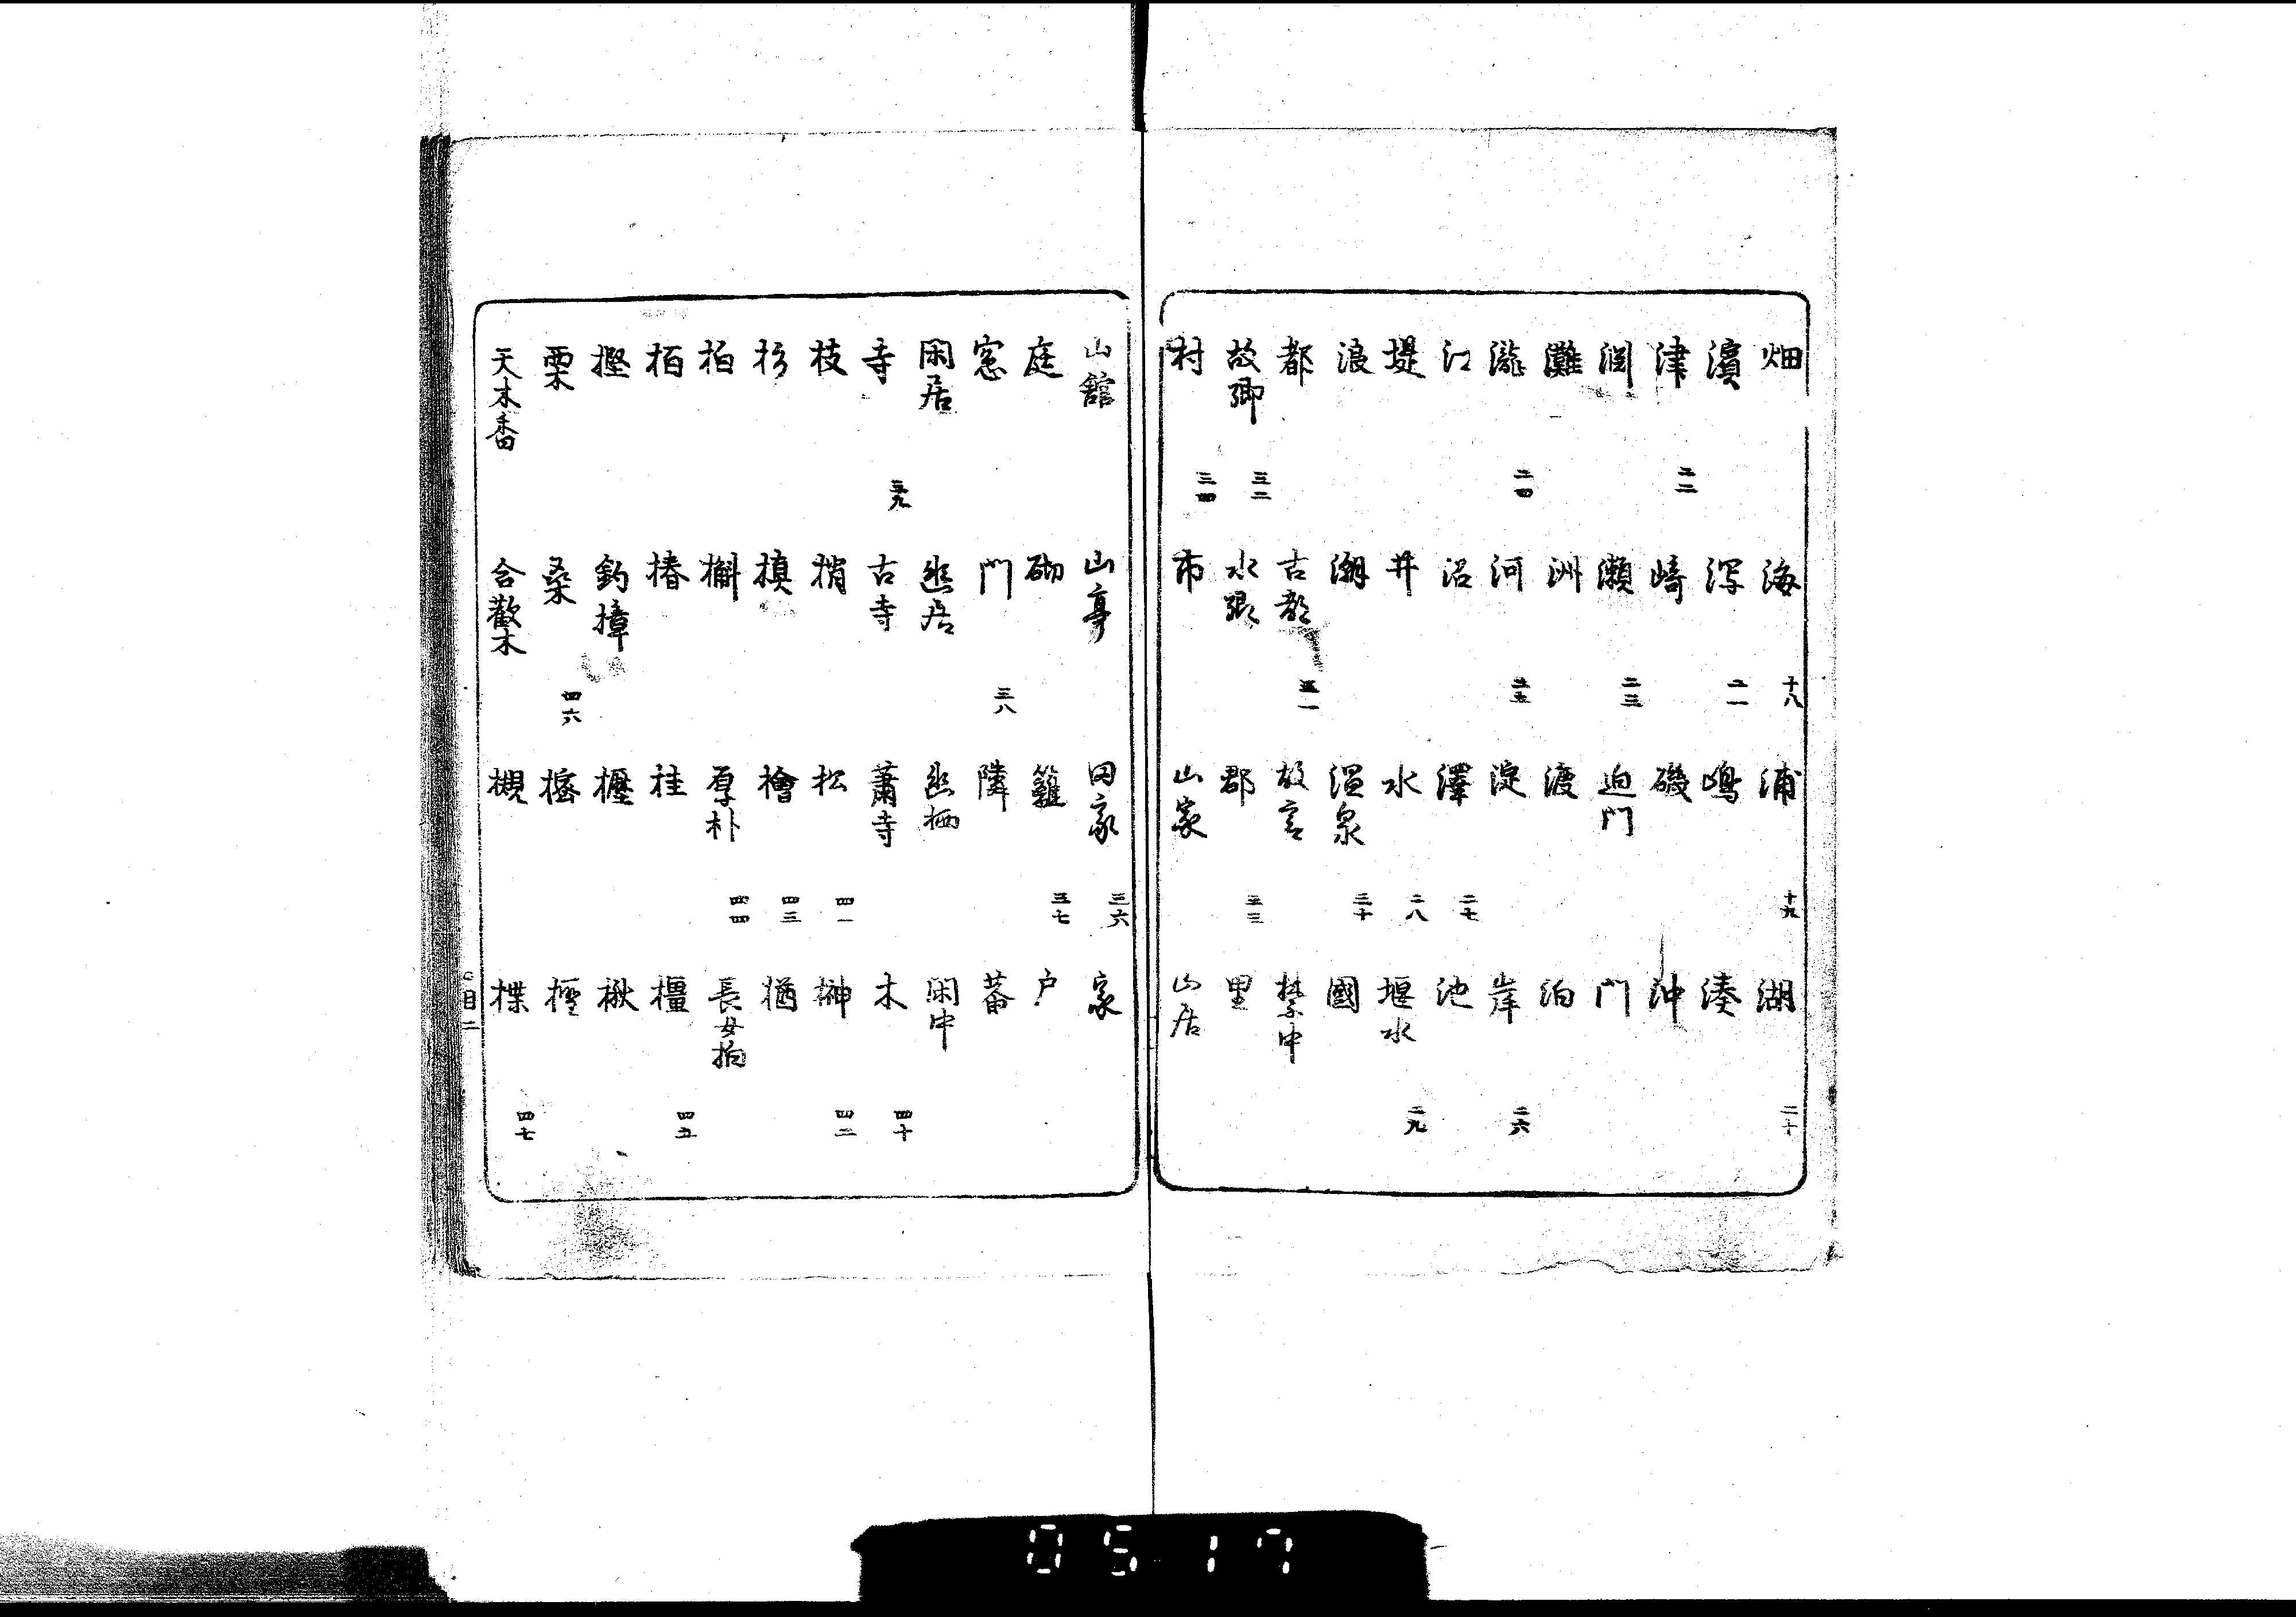 畑 海 十八 浦 十九 湖 二十
濱 深 二一 嶋 湊
津 二二 崎 磯 沖
渕 瀬 二三 迫門 門
灘 洲 渡 泊
瀧 二四 河 二五 淀 岸 二六
江 沼 澤 二七 池
堤 井 水 二八 堰水 二九
浪 潮 温泉 三十 國
都 古都 三一 故宮 禁中
故郷 三二 水郷 郡 三三 里
村 三四 市 山家 山居
山舘 山亭 田家 三六 家
庭 砌 籬 三七 户
窓 門 三八 隣
閑居 幽居 幽栖 閑中
寺 三九 古寺 蕭寺 木 四十
枝 梢 松 四一 榊 四二
杉 槙 檜 四三
栢 槲 厚朴 四四 長女柏
栢 椿 桂 橿 四五
樫 釣樟 櫪 楸
栗 桑 四六
天木香 合歡木 槻 四七
目二
0517